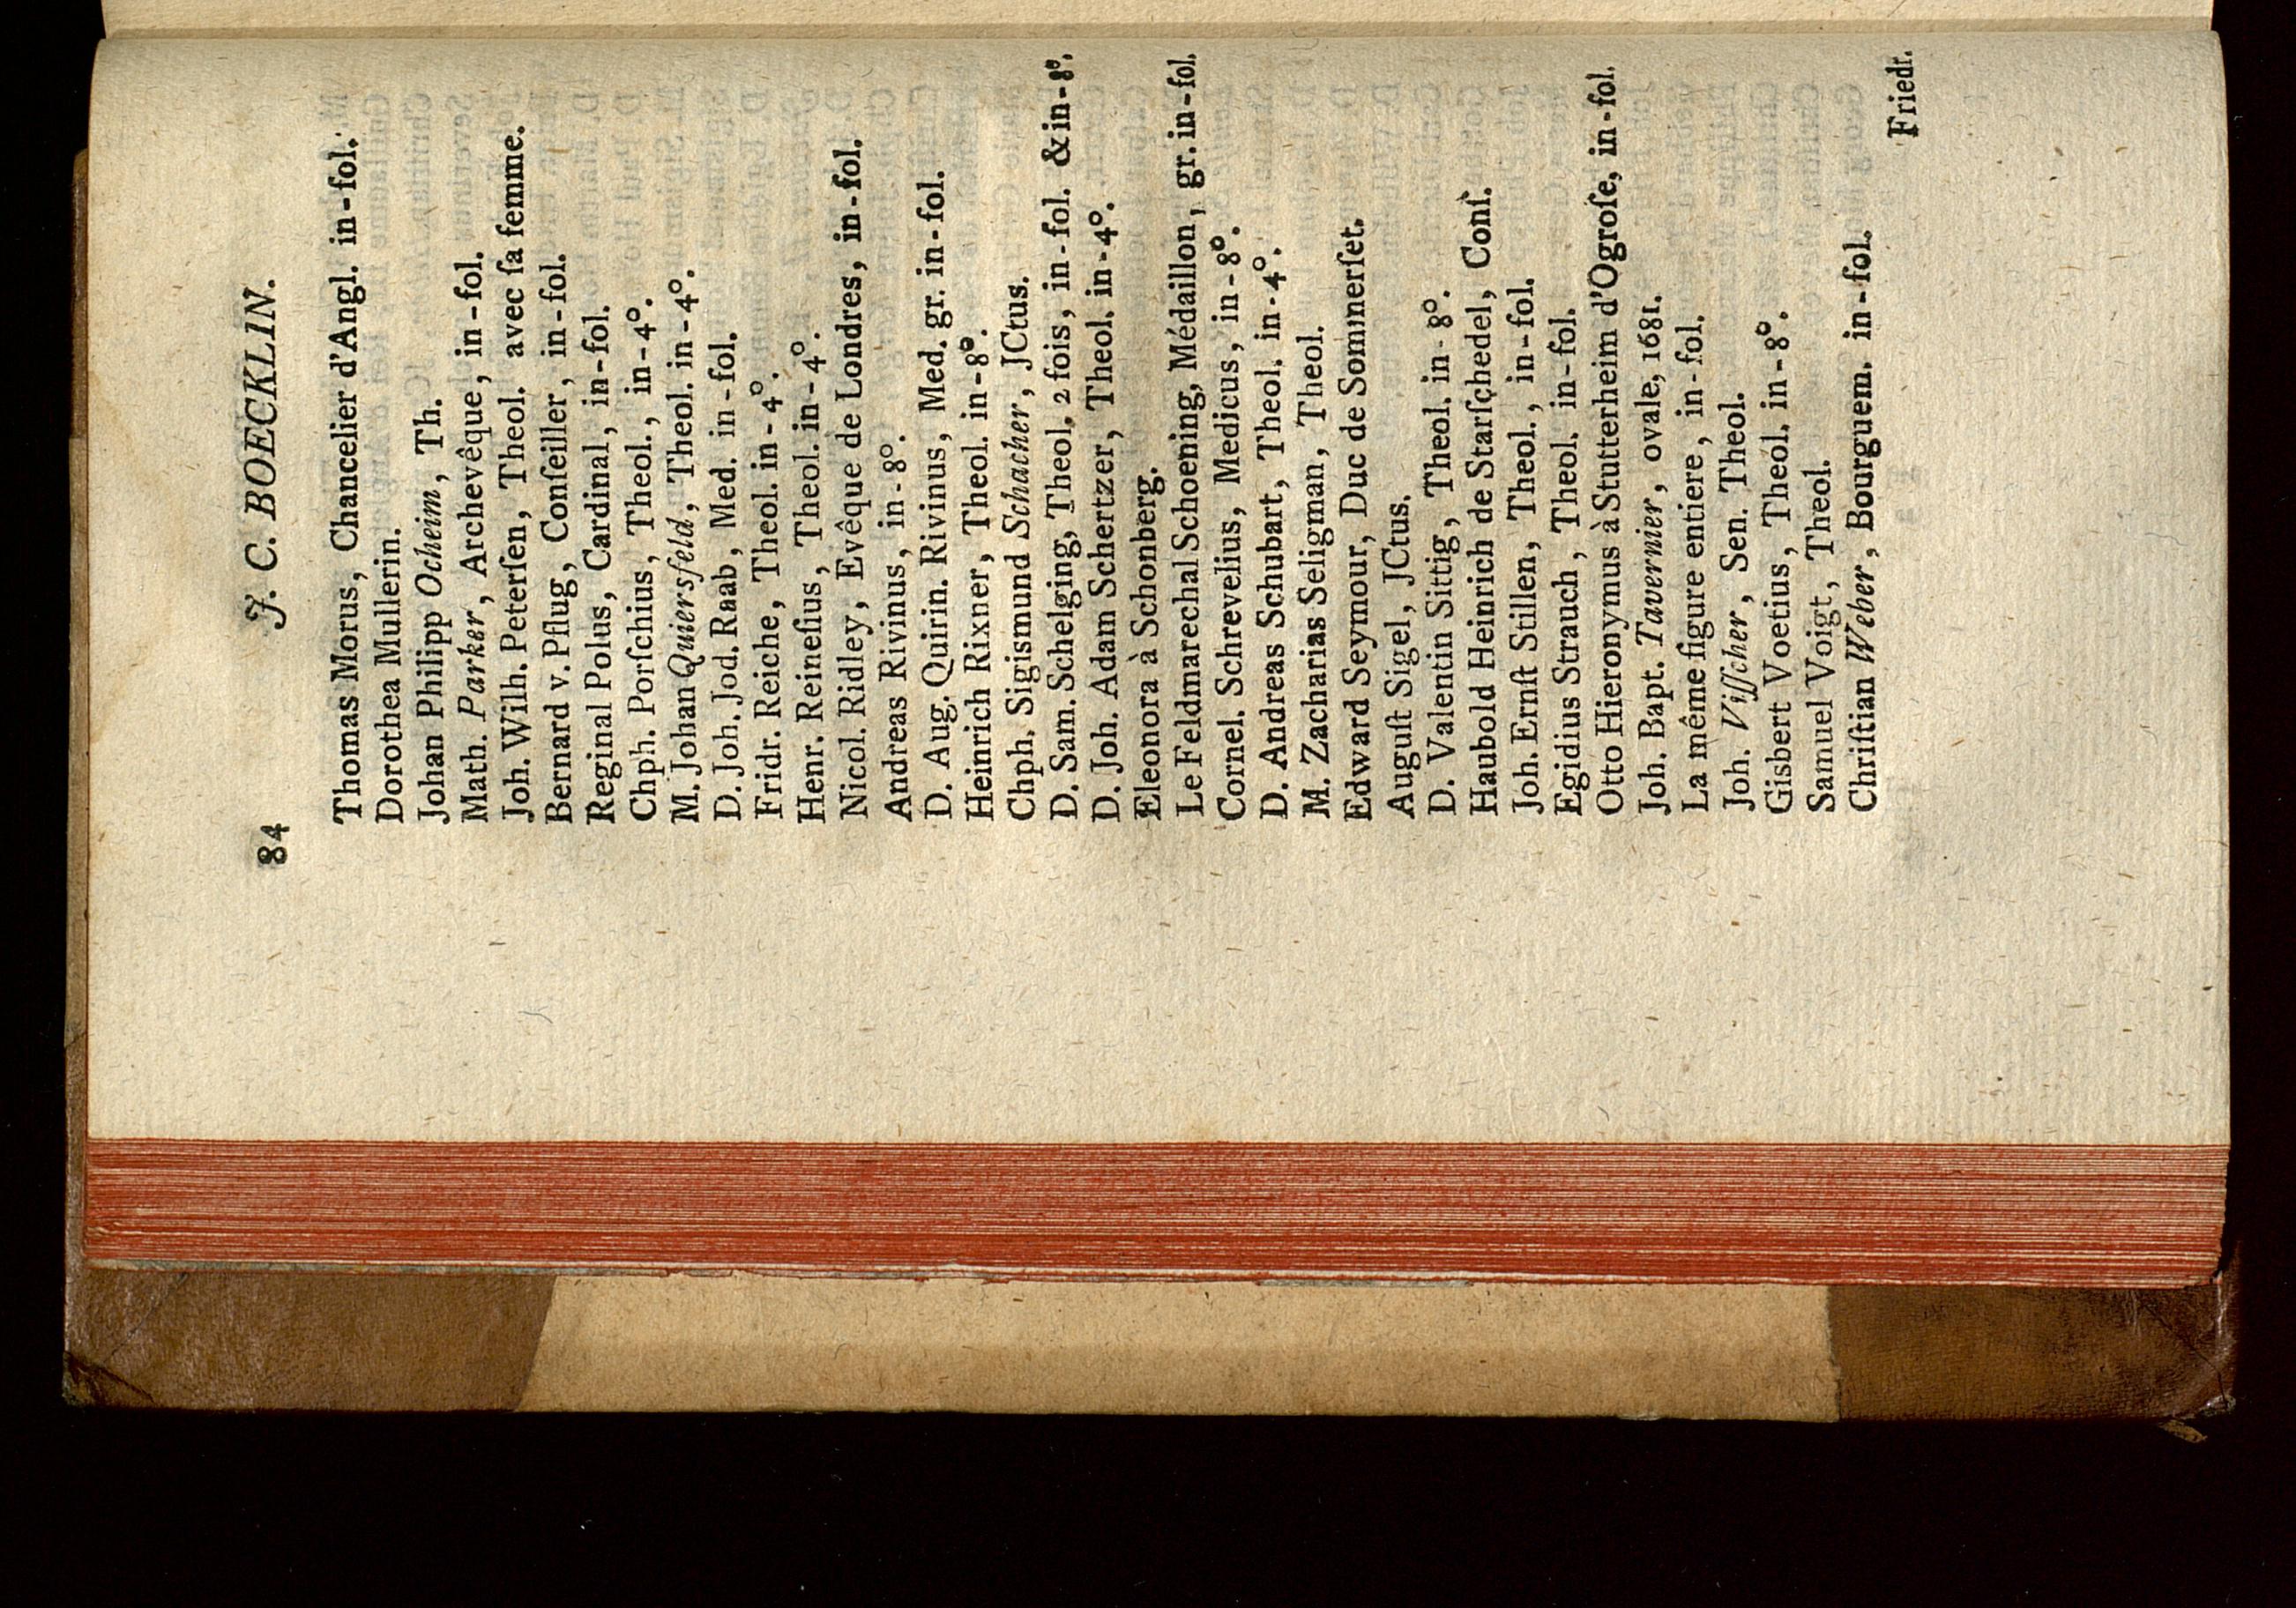 84 J. C. BOECKLIN.
Thomas Morus, Chancelier d'Angl. in-fol.
Dorothea Mullerin.
Johan Philipp Ocheim, Th.
Math. Parker, Archevêque, in-fol.
Joh. Wilh. Peterſen, Theol. avec ſa femme.
Bernard v. Pflug, Conſeiller, in-fol.
Reginal Polus, Cardinal, in-fol.
Chph. Porſchius, Theol., in-4°.
M. Johan Quiersfeld, Theol. in-4°.
D. Joh. Jod. Raab, Med. in-fol.
Fridr. Reiche, Theol. in-4°.
Henr. Reineſius, Theol. in-4°.
Nicol. Ridley, Evêque de Londres, in-fol.
Andreas Rivinus, in-8°.
D. Aug. Quirin. Rivinus, Med. gr. in-fol.
Heinrich Rixner, Theol. in-8°.
Chph. Sigismund Schacher, JCtus.
D. Sam. Schelging, Theol. 2 fois, in-fol. & in-8°.
D. Joh. Adam Schertzer, Theol. in-4°.
Eleonora à Schonberg.
Le Feldmarechal Schoening, Médaillon, gr. in-fol.
Cornel. Schrevelius, Medicus, in-8°.
D. Andreas Schubart, Theol. in-4°.
M. Zacharias Seligman, Theol.
Edward Seymour, Duc de Sommerſet.
Auguſt Sigel, JCtus.
D. Valentin Sittig, Theol. in-8°.
Haubold Heinrich de Starſchedel, Conſ.
Joh. Ernſt Stillen, Theol., in-fol.
Egidius Strauch, Theol. in-fol.
Otto Hieronymus à Stutterheim d'Ogroſe, in-fol.
Joh. Bapt. Tavernier, ovale, 1681.
La même figure entiere, in-fol.
Joh. Viſſcher, Sen. Theol.
Gisbert Voetius, Theol. in-8°.
Samuel Voigt, Theol.
Chriſtian Weber, Bourguem. in-fol.
Friedr.